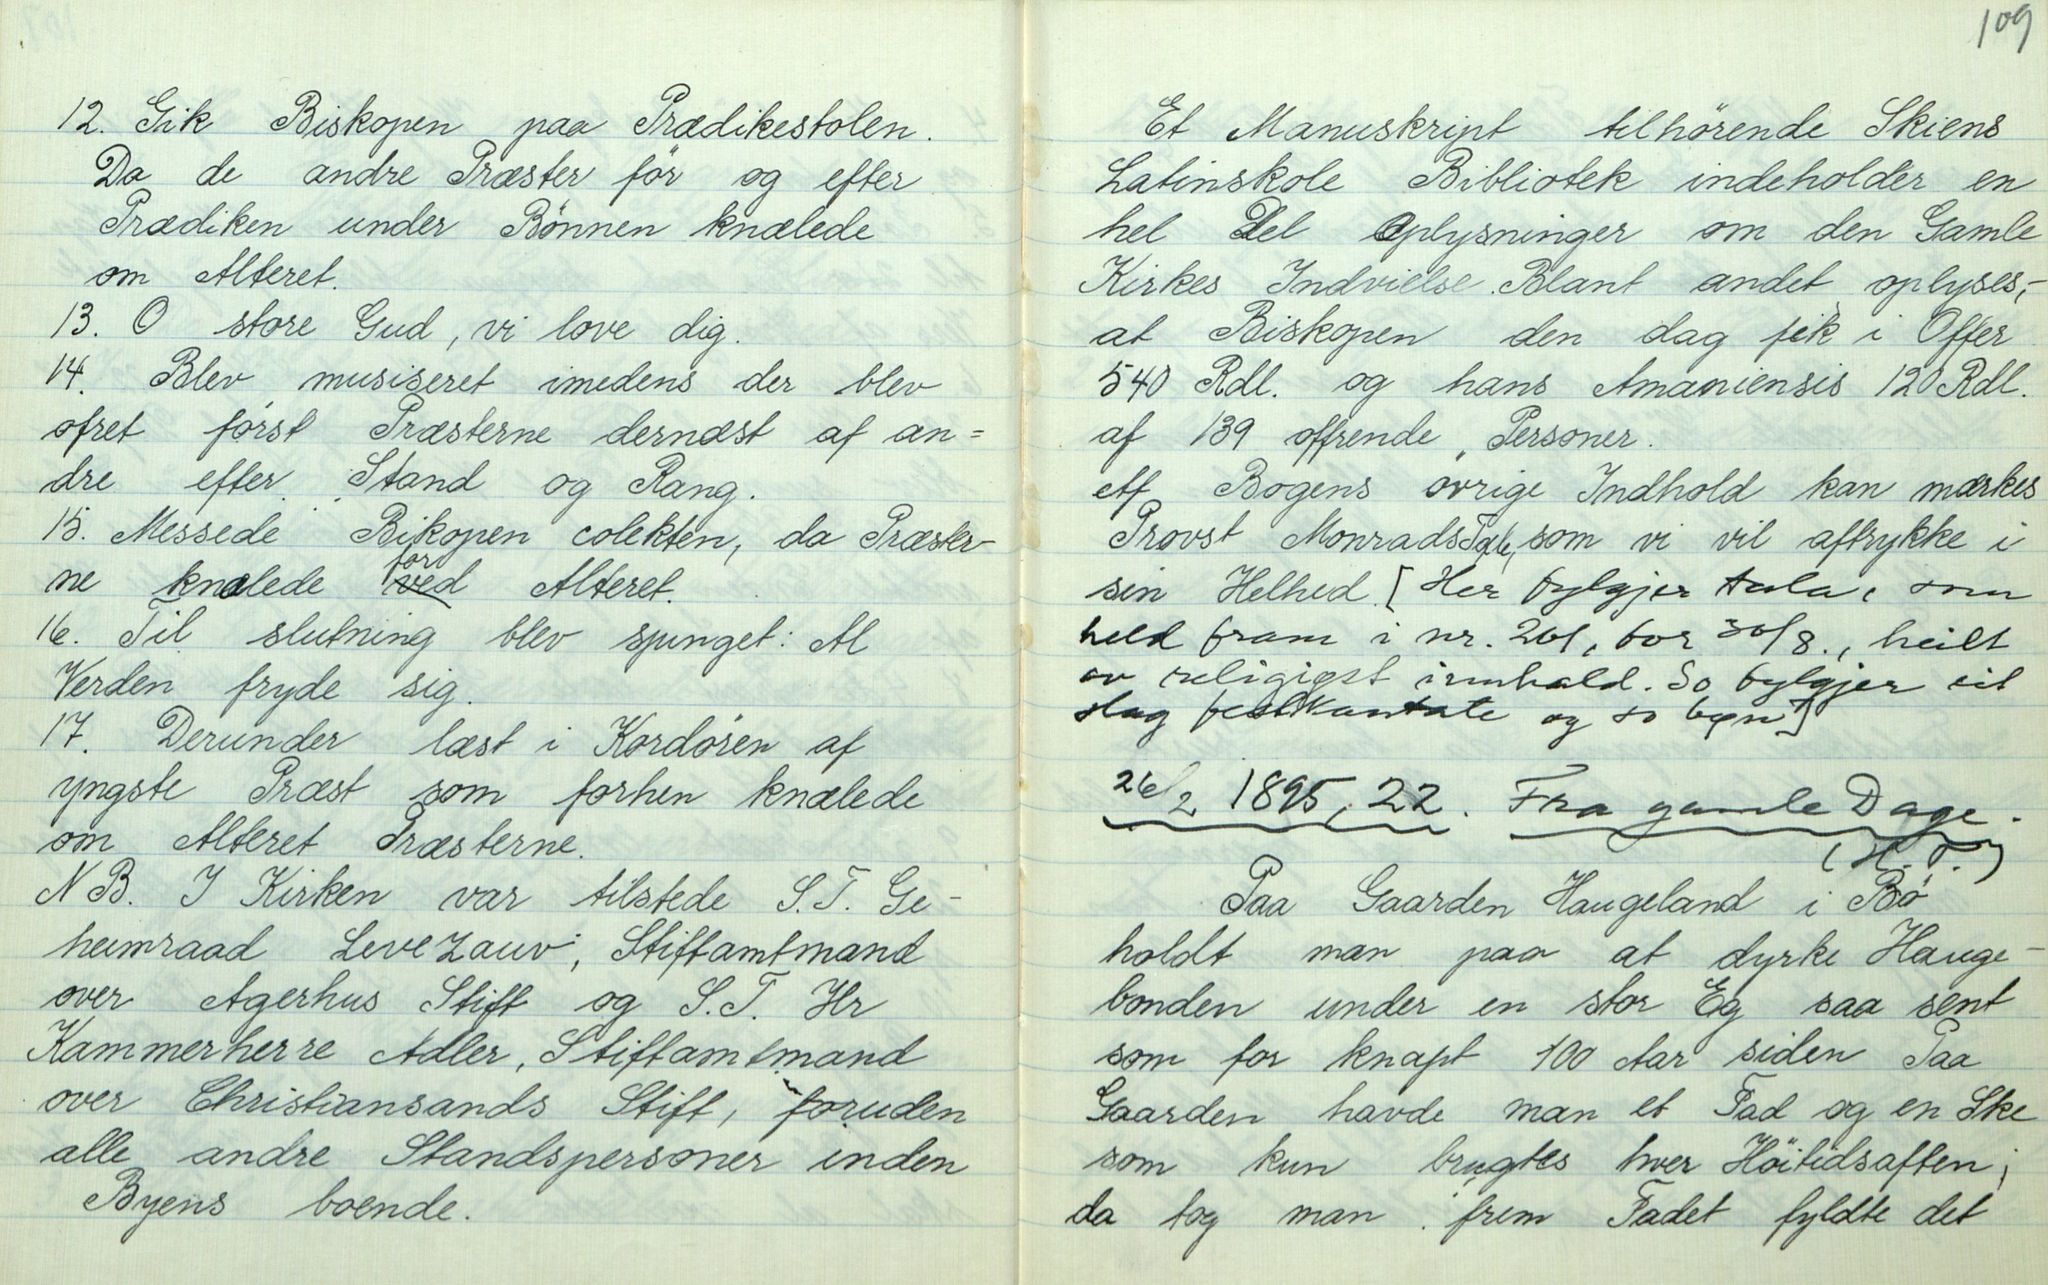 12. Gik Biskopen paa Prædikestolen.
Da de andre Præster før og efter
Prædiken under Bønnen knælede
om Alteret.
13. O store Gud, vi love dig.
14. Blev musiseret imedens der blev
ofret først Præsterne dernæst af an=
dre efter Stand og Rang.
15. Messede Bikopen colekten, da Præster-
ne knælede ved for Alteret.
16. Til slutning blev spunget: Al
Verden fryde sig.
17. Derunder læst i Kordøren af
yngste Præst som forhen knælede
om Alteret Præsterne.
NB. I Kirken var tilstede S.T. Ge-
heimraad Levezauv, Stiftamtmand
over Agerhus Stift og S.T. Hr
Kammerherre Adler, Stiftamtmand
over Christiansands Stift, foruden
alle andre Standspersoner inden
Byens boende.
109
Et Manuskript tilhørende Skiens
Latinskole Bibliotek indeholder en
hel Del Oplysninger om den Gamle
Kirkes Indvielse. Blant andet oplyses,-
at Biskopen den dag fik i Offer
540 Rdl. og hans Amaniensis 120 Rdl.
af 139 offrende Personer.
Af Bogens øvrige Indhold kan mærkes
Provst Monrads Tale, som vi vil aftrykke i
sin Helhed. [Her fylgjer tala, som
held fram i nr. 201, for 30/8., heilt
av religiøst innhald. So fylgjer eit
slag festkantate og so bøn]
26/2 1895, 22. Fra gamle Dage.
(H. T.)
Paa Gaarden Haugeland i Bø
holdt man paa at dyrke Hauge-
bonden under en stor Eg saa sent
som for knapt 100 Aar siden Paa
Gaarden havde man et Fad og en Ske
som kun brugtes hver Høitidsaften;
da tog man frem Fadet fyldte det